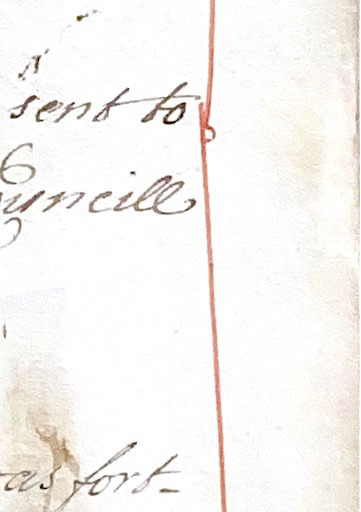 sent to
ouncill
as fort-